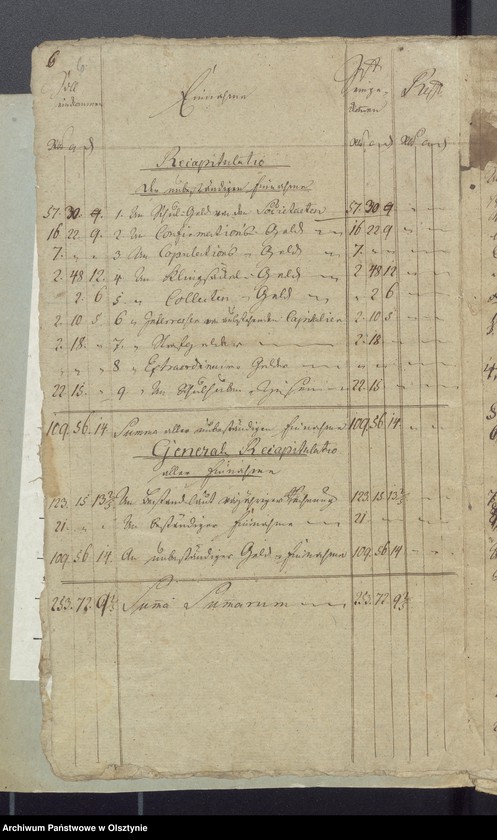 6
Soll einkommen
Einnahme
Ist eingekommen
Rest.
Recapitulatio
der unbeständigen Einnahme
57. 30. 9. 1. An Schul-Geld von den Societaeten 57. 30 9
16 22. 9. 2. An Confirmations-Geld 16 22 9
7. " " 3 An Copulations-Geld 7. " "
2. 48. 12. 4 An Klingsäckel-Geld 2 48 12
" 2 6 5 " Collecten-Geld " 2 6
2. 10. 5 6 " Interressen von ausstehenden Capitalien 2. 10. 5
2. 18. " 7. " Strafgelder 2. 18. "
" " " 8 " Extraordinaire Gelder
22 15. " 9. " An Schulhuben-Zinsen 22. 15 "
109. 56. 14 Summa aller unbeständigen Einnahme 109. 56 14
General Recapitulatio
aller Einnahme
123. 15 13 2/3 An Bestand laut vorjähriger Rechnung 123. 15 13 2/3
21 " " An beständiger Einnahme 21 " "
109. 56 14 An unbeständiger Geld-Einnahme 109. 56 14
253. 72 9 2/3 Suma Sumarum 253. 72 9 2/3
Archiwum Państwowe w Olsztynie